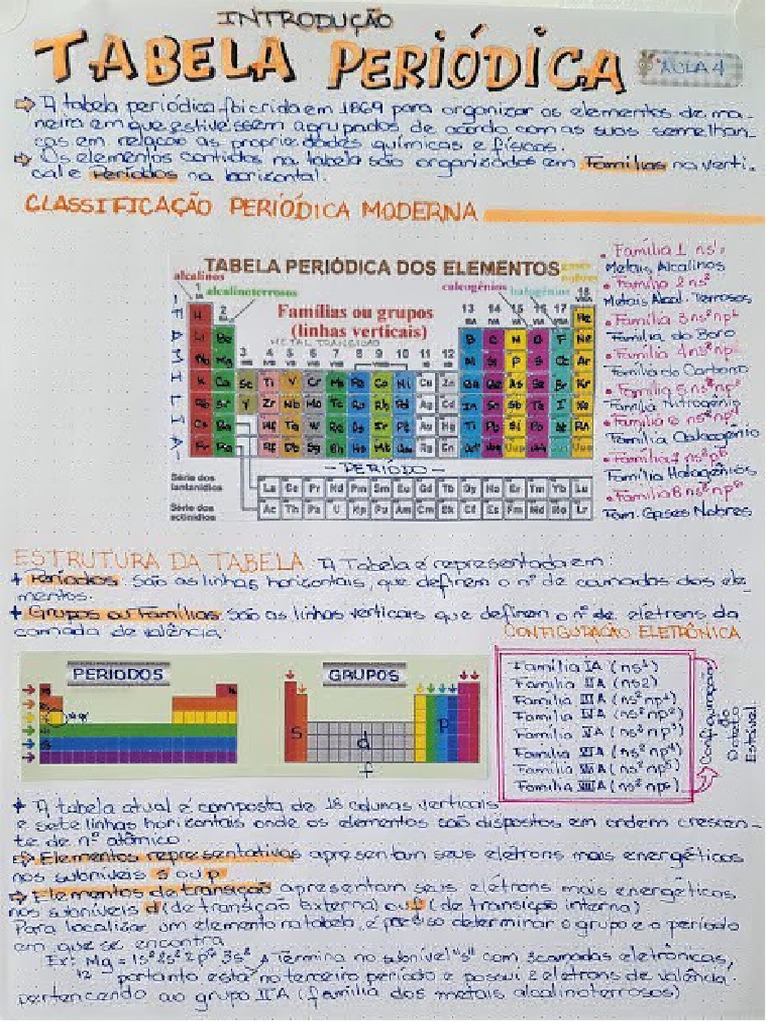 INTRODUÇÃO
TABELA PERIÓDICA
AULA 4
A tabela periódica foi criada em 1869 para organizar os elementos de ma-
neira em que estivessem agrupados de acordo com as suas semelhan-
ças em relação as propriedades químicas e físicas.
Os elementos contidos na tabela são organizados em Famílias na verti-
cal e Períodos na horizontal.
CLASSIFICAÇÃO PERIÓDICA MODERNA
TABELA PERIÓDICA DOS ELEMENTOS
alcalinos
alcalinoterrosos
calcogênios
halogênios
gases
nobres
Famílias ou grupos
(linhas verticais)
METAL TRANSIÇÃO
FAMILIA
1 2 3 4 5 6 7 8 9 10 11 12 13 14 15 16 17 18
H He
Li Be B C N O F Ne
Si P S Cl Ar
K Ca Sc Ti V Cr Mn Fe Co Ni Cu Zn Ga Ge As Se Br Kr
Rb Sr Y Zr Nb Mo Tc Ru Rh Pd Ag Cd In Sn Sb Te I Xe
Cs Ba Hf Ta W Re Os Ir Pt Au Hg Tl Pb Bi Po At Rn
Fr Ra Rf Db Sg Bh Hs Mt
- PERÍODO -
Série dos
lantanídios
La Ce Pr Nd Pm Sm Eu Gd Tb Dy Ho Er Tm Yb Lu
Série dos
actinídios
Ac Th Pa U Np Pu Am Cm Bk Cf Es Fm Md No Lr
• Família 1 ns¹
Metais Alcalinos
• Família 2 ns²
Metais Alcal. Terrosos
• Família 3 ns²np¹
Família do Boro
• Família 4 ns²np²
Família do Carbono
• Família 5 ns²np³
Família Nitrogênio
• Família 6 ns²np⁴
Família Calcogênio
• Família 7 ns²np⁵
Família Halogênios
• Família 8 ns²np⁶
Fam. Gases Nobres
ESTRUTURA DA TABELA. A Tabela é representada em:
+ Períodos: São as linhas horizontais, que definem o nº de camadas dos ele-
mentos.
+ Grupos ou Famílias: São as linhas verticais que definem o nº de elétrons da
camada de valência
CONFIGURAÇÃO ELETRÔNICA
PERIODOS
GRUPOS
s
d
p
f
Família IA (ns¹)
Família IIA (ns2)
Família IIIA (ns²np¹)
Família IVA (ns²np²)
Família VA (ns²np³)
Família VIA (ns²np⁴)
Família VIIA (ns²np⁵)
Família VIIIA (ns²np⁶)
Configuração
do
Octeto
Estável
+ A tabela atual é composta de 18 colunas verticais
e sete linhas horizontais onde os elementos são dispostos em ordem crescen-
te de nº atômico
Elementos representativos apresentam seus elétrons mais energéticos
nos subníveis s ou p
Elementos de transição apresentam seus elétrons mais energéticos
nos subníveis d (de transição externa) ou f (de transição interna)
Para localizar um elemento na tabela, é preciso determinar o grupo e o período
em que se encontra
Ex: Mg = 1s² 2s² 2p⁶ 3s² Termina no subnível "s" com 3 camadas eletrônicas,
12 portanto está no terceiro período e possui 2 elétrons de valência
pertencendo ao grupo IIA (família dos metais alcalinoterrosos)